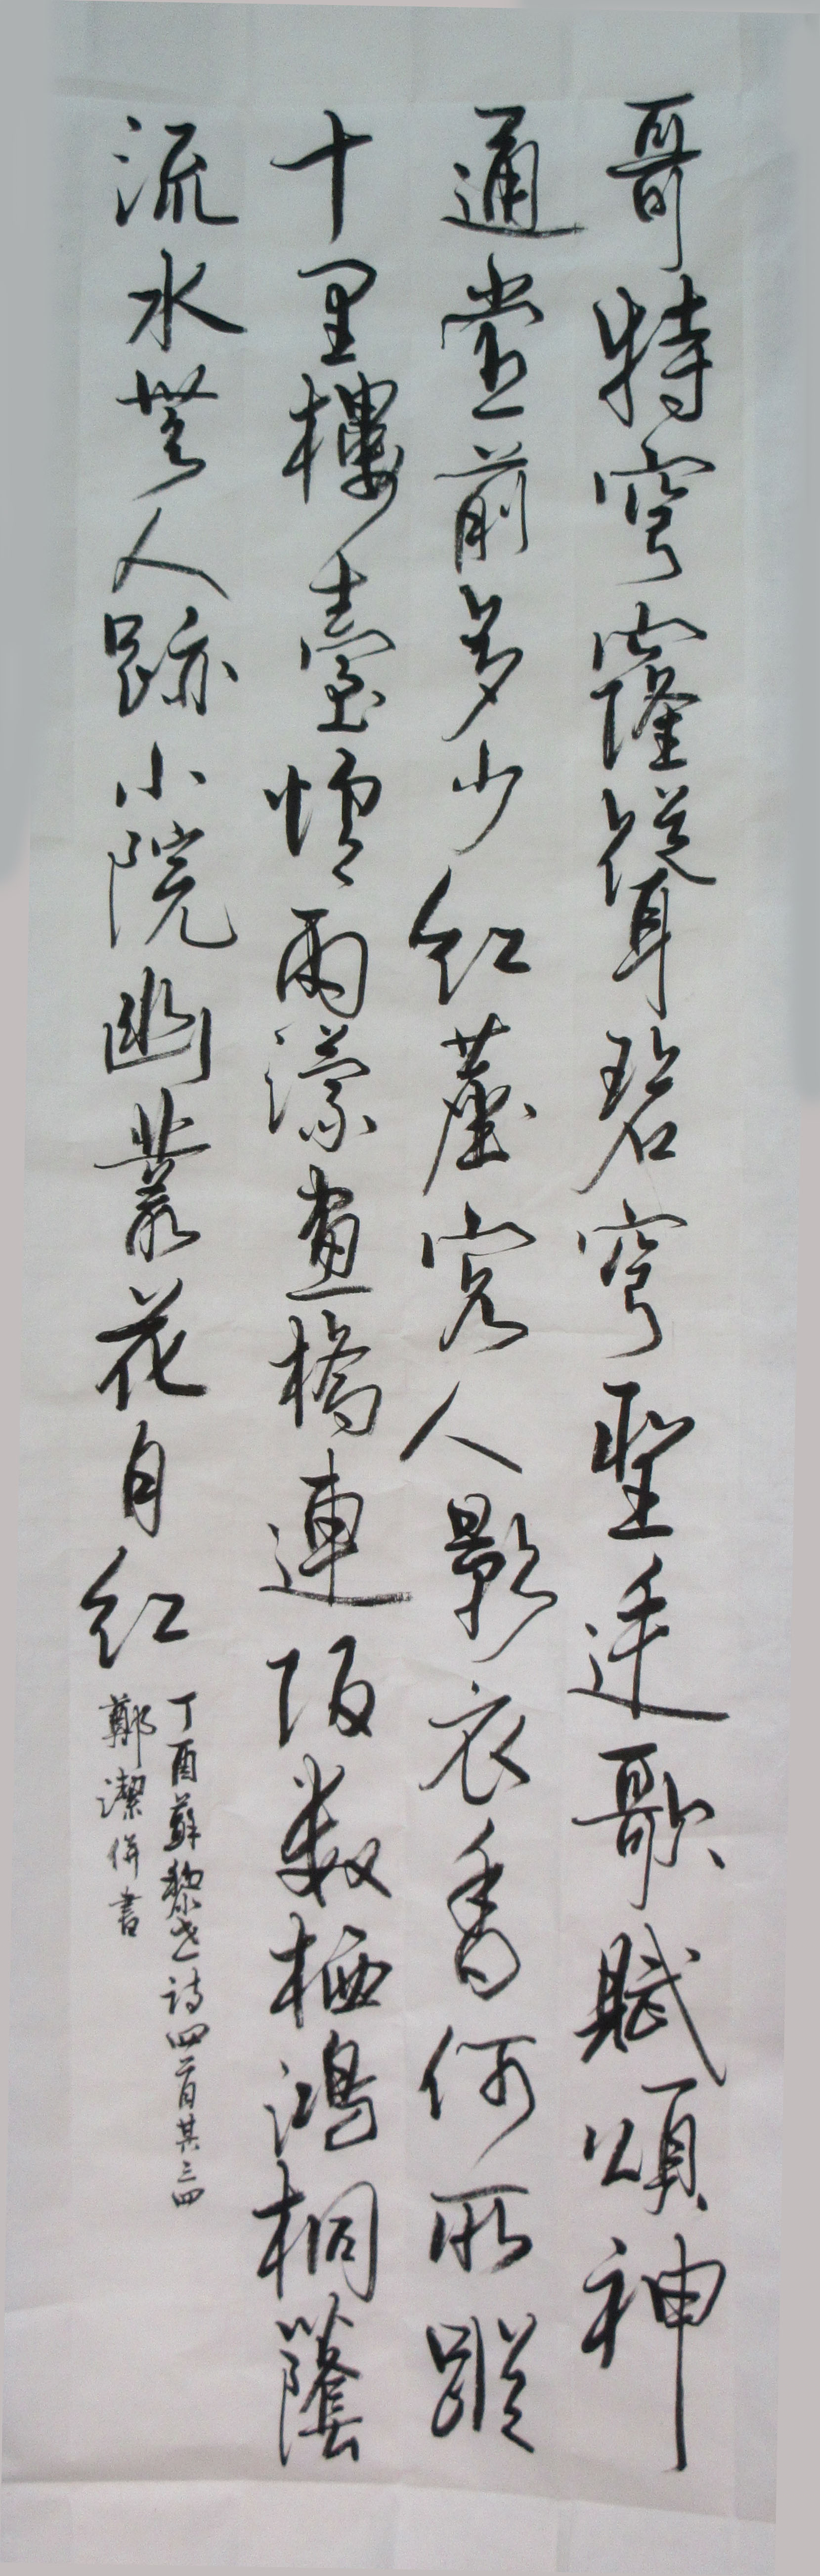 哥特穹窿聳碧穹聖廷歌賦頌神
通堂前多少紅塵客人影衣香何所蹤
十里樓臺煙雨濛畫橋連阪數栖鴻桐蔭
流水無人跡小院幽叢花自紅
丁酉蘇黎世詩四首其三四
鄭潔併書